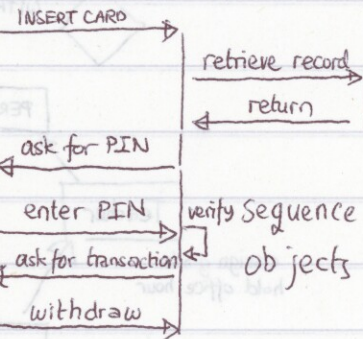 INSERT CARD
retrieve record
return
ask for PIN
enter PIN
verify Sequence
ask for transaction
objects
withdraw
hold office hour